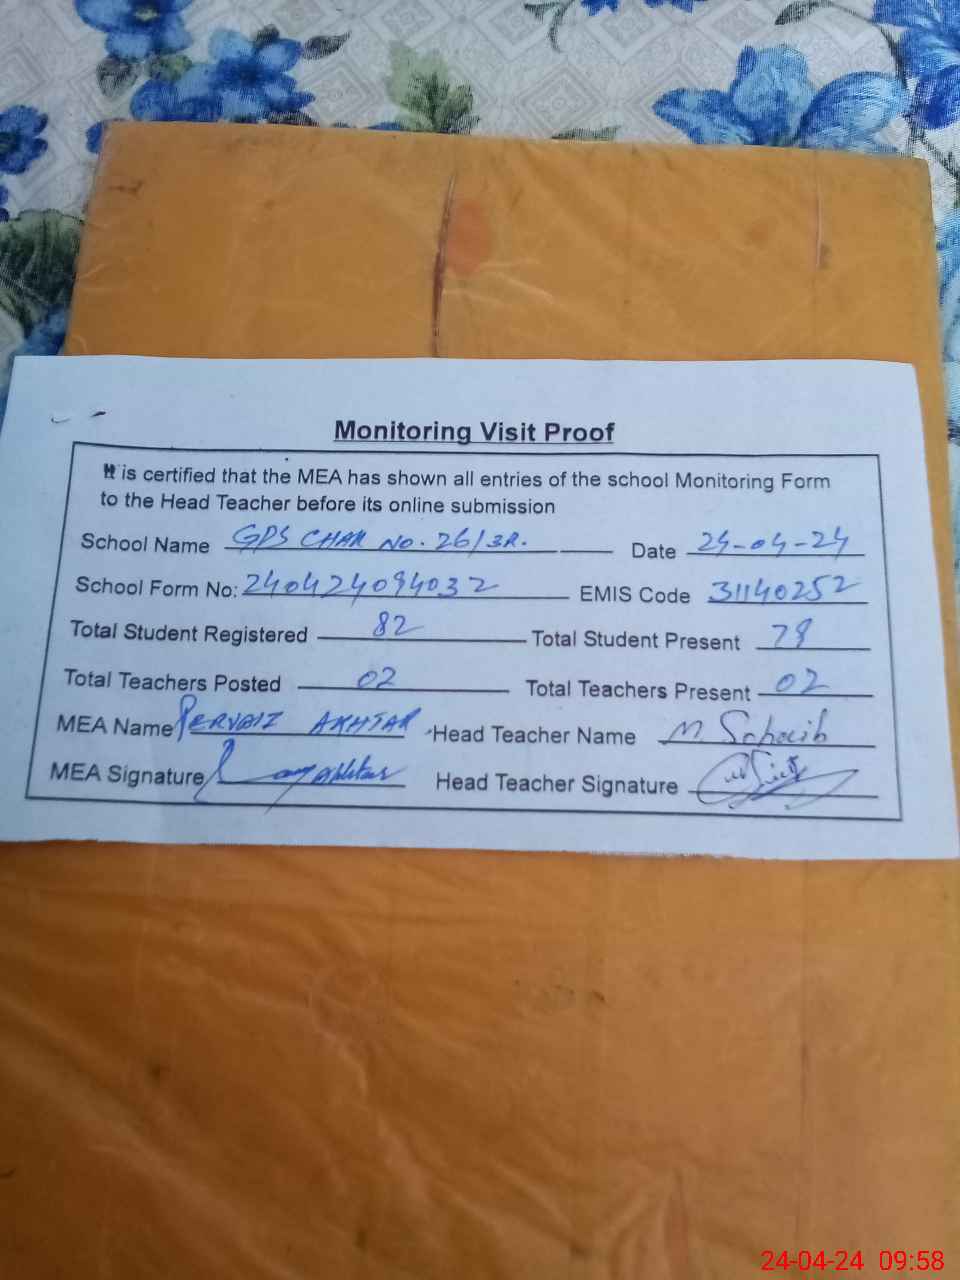 Monitoring Visit Proof
It is certified that the MEA has shown all entries of the school Monitoring Form
to the Head Teacher before its online submission
School Name GPS CHAK NO. 26/3R. Date 24-04-24
School Form No: 240424094032 EMIS Code 31140252
Total Student Registered 82 Total Student Present 78
Total Teachers Posted 02 Total Teachers Present 02
MEA Name PERVAIZ AKHTAR Head Teacher Name M Sohaib
MEA Signature Head Teacher Signature
24-04-24 09:58